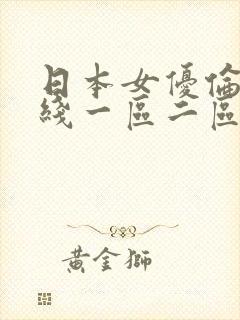 日本女優倫
綫一區二區
黃金獅